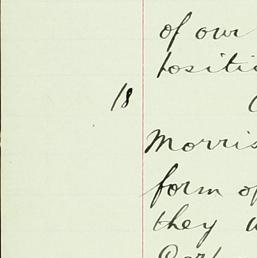 of our
positi
18
Morris
form of
they w